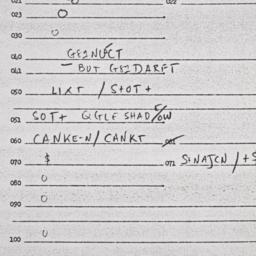 021 022
023 O
030 O
040 GEINUCT
041 - BUT GEIDARFT
050 LIXT / STOT +
051 SOT+ GIGLE SHADOW
060 CANKE-N/ CANKT
070 $ 071 SINATCN / +S
080 0
090 0
100 0